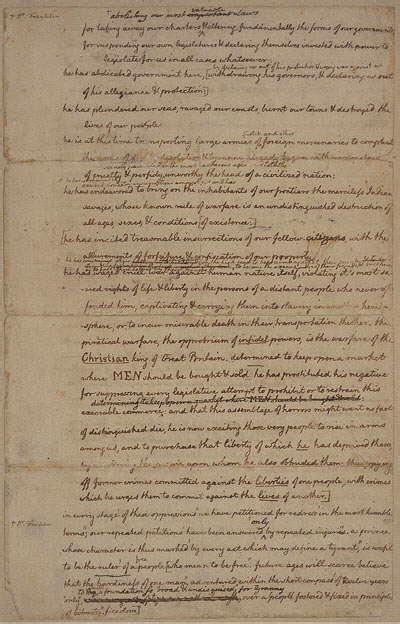 * Dr. Franklin
abolishing our most important valuable laws
for taking away our charters & altering fundamentally the forms of our governments
for suspending our own legislatures & declaring themselves invested with power to
legislate for us in all cases whatsoever.
he has abdicated government here, [withdrawing his governors, & declaring us out
of his allegiance & protection;]
he has plundered our seas, ravaged our coasts, burnt our towns & destroyed the
lives of our people:
he is at this time transporting large armies of foreign mercenaries to compleat
the works of death desolation & tyranny already begun with circumstances
of cruelty & perfidy unworthy the head of a civilized nation:
he has endeavored to bring on the inhabitants of our frontiers the merciless Indian
savages, whose known rule of warfare is an undistinguished destruction of
all ages, sexes & conditions [of existence:]
[he has incited treasonable insurrections of our fellow citizens, with the
allurements of forfeiture & confiscation of our property:
he has waged cruel war against human nature itself, violating it's most sa-
cred rights of life & liberty in the persons of a distant people who never of-
fended him, captivating & carrying them into slavery in another hemi-
sphere, or to incur miserable death in their transportation thither. this
piratical warfare, the opprobrium of infidel powers, is the warfare of the
Christian king of Great Britain. determined to keep open a market
where MEN should be bought & sold he has prostituted his negative
for suppressing every legislative attempt to prohibit or to restrain this
determining to keep open a market where MEN should be bought & sold
execrable commerce: and that this assemblage of horrors might want no fact
of distinguished die, he is now exciting those very people to rise in arms
among us, and to purchase that liberty of which he has deprived them,
by murdering the people upon whom he also obtruded them: thus paying
off former crimes committed against the liberties of one people, with crimes
which he urges them to commit against the lives of another.]
in every stage of these oppressions we have petitioned for redress in the most humble
only
terms; our repeated petitions have been answered by repeated injury. a prince
* Dr. Franklin
whose character is thus marked by every act which may define a tyrant, is unfit
to be the ruler of a people [who mean to be free. future ages will scarce believe
that the hardiness of one man, adventured within the short compass of twelve years
to a foundation so broad & undisguised, for tyranny
only over a people fostered & fixed in principles
of freedom]